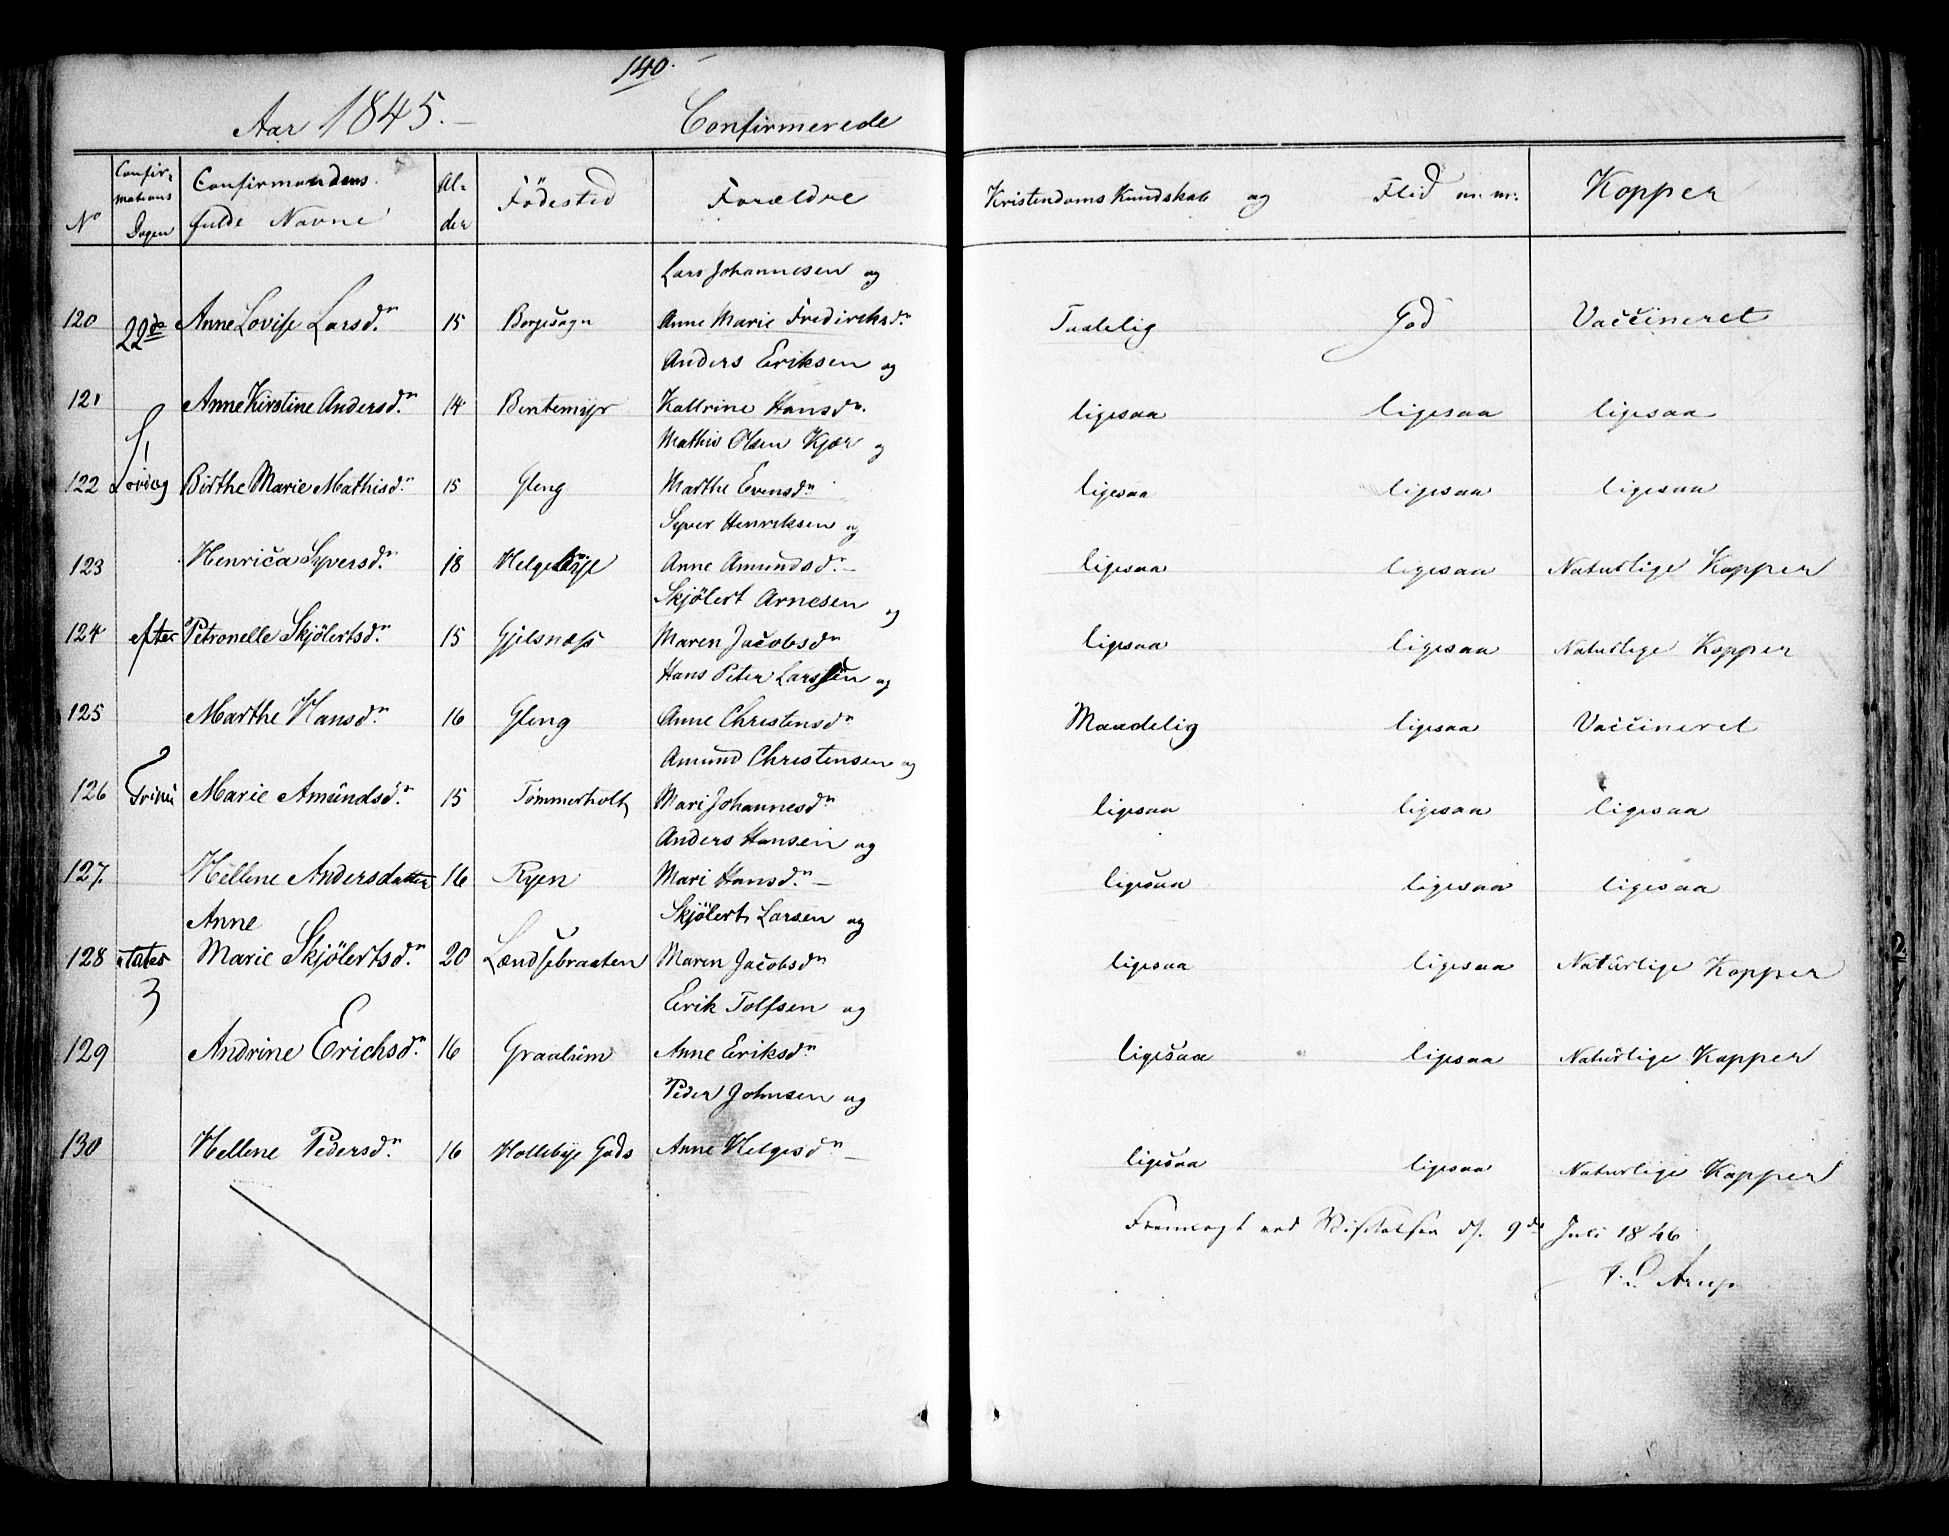 140.
Aar 1845. Confirmerede
No Confirmations Dagen Confirmandens fulde Navne Alder Födested Forældre Kristendoms Kundskab og Flid m.m. Kopper
Lars Johannesen og
120 22de Anne Lovise Larsdn 15 Borgesogn Anne Marie Fredirchsdn Taalelig God Vaccineret
Anders Eriksen og
121 Anne Kirstine Andersdn 14 Bentemyr Kattrine Hansdn ligesaa ligesaa ligesaa
Mathis Olsen Kjær og
122 Birthe Marie Mathisdn 15 Gleng Marthe Evensdn ligesaa ligesaa ligesaa
Syver Henriksen og
123 Henrica Syversdn 18 Anne Amundsdn ligesaa ligesaa Naturlige Kopper
Skjölert Arnesen og
124 efter Petronelle Skjölertsdn 15 Gjelsnæss Maren Jacobsdn ligesaa ligesaa Naturlige Kopper
Hans Peter Larssen og
125 Marthe Hansdn 16 Gleng Anne Christensdn Maadelig ligesaa Vaccineret
Amund Christensen og
126 Trini Marie Amundsdn 15 Tømmerholt Mari Johannesdn ligesaa ligesaa ligesaa
Anders Hansen og
127. Hellene Andersdatter 16 Ryen Mari Hansdn ligesaa ligesaa ligesaa
Anne Skjölert Larsen og
128 tates Marie Skjölertsdn 20 Lændsebraaten Maren Jacobsdn ligesaa ligesaa Naturlige Kopper
3 Erik Tolfsen og
129 Andrine Erichsdn 16 Graalum Anne Eriksdn ligesaa ligesaa Naturlige Kopper
Peder Johnsen og
130 Hellene Pedersdn 16 Hollebye Gods Anne Helgesdn ligesaa ligesaa Naturlige Kopper
Fremlagt ved Visitatsen d. 9de Juli 1846
Arup